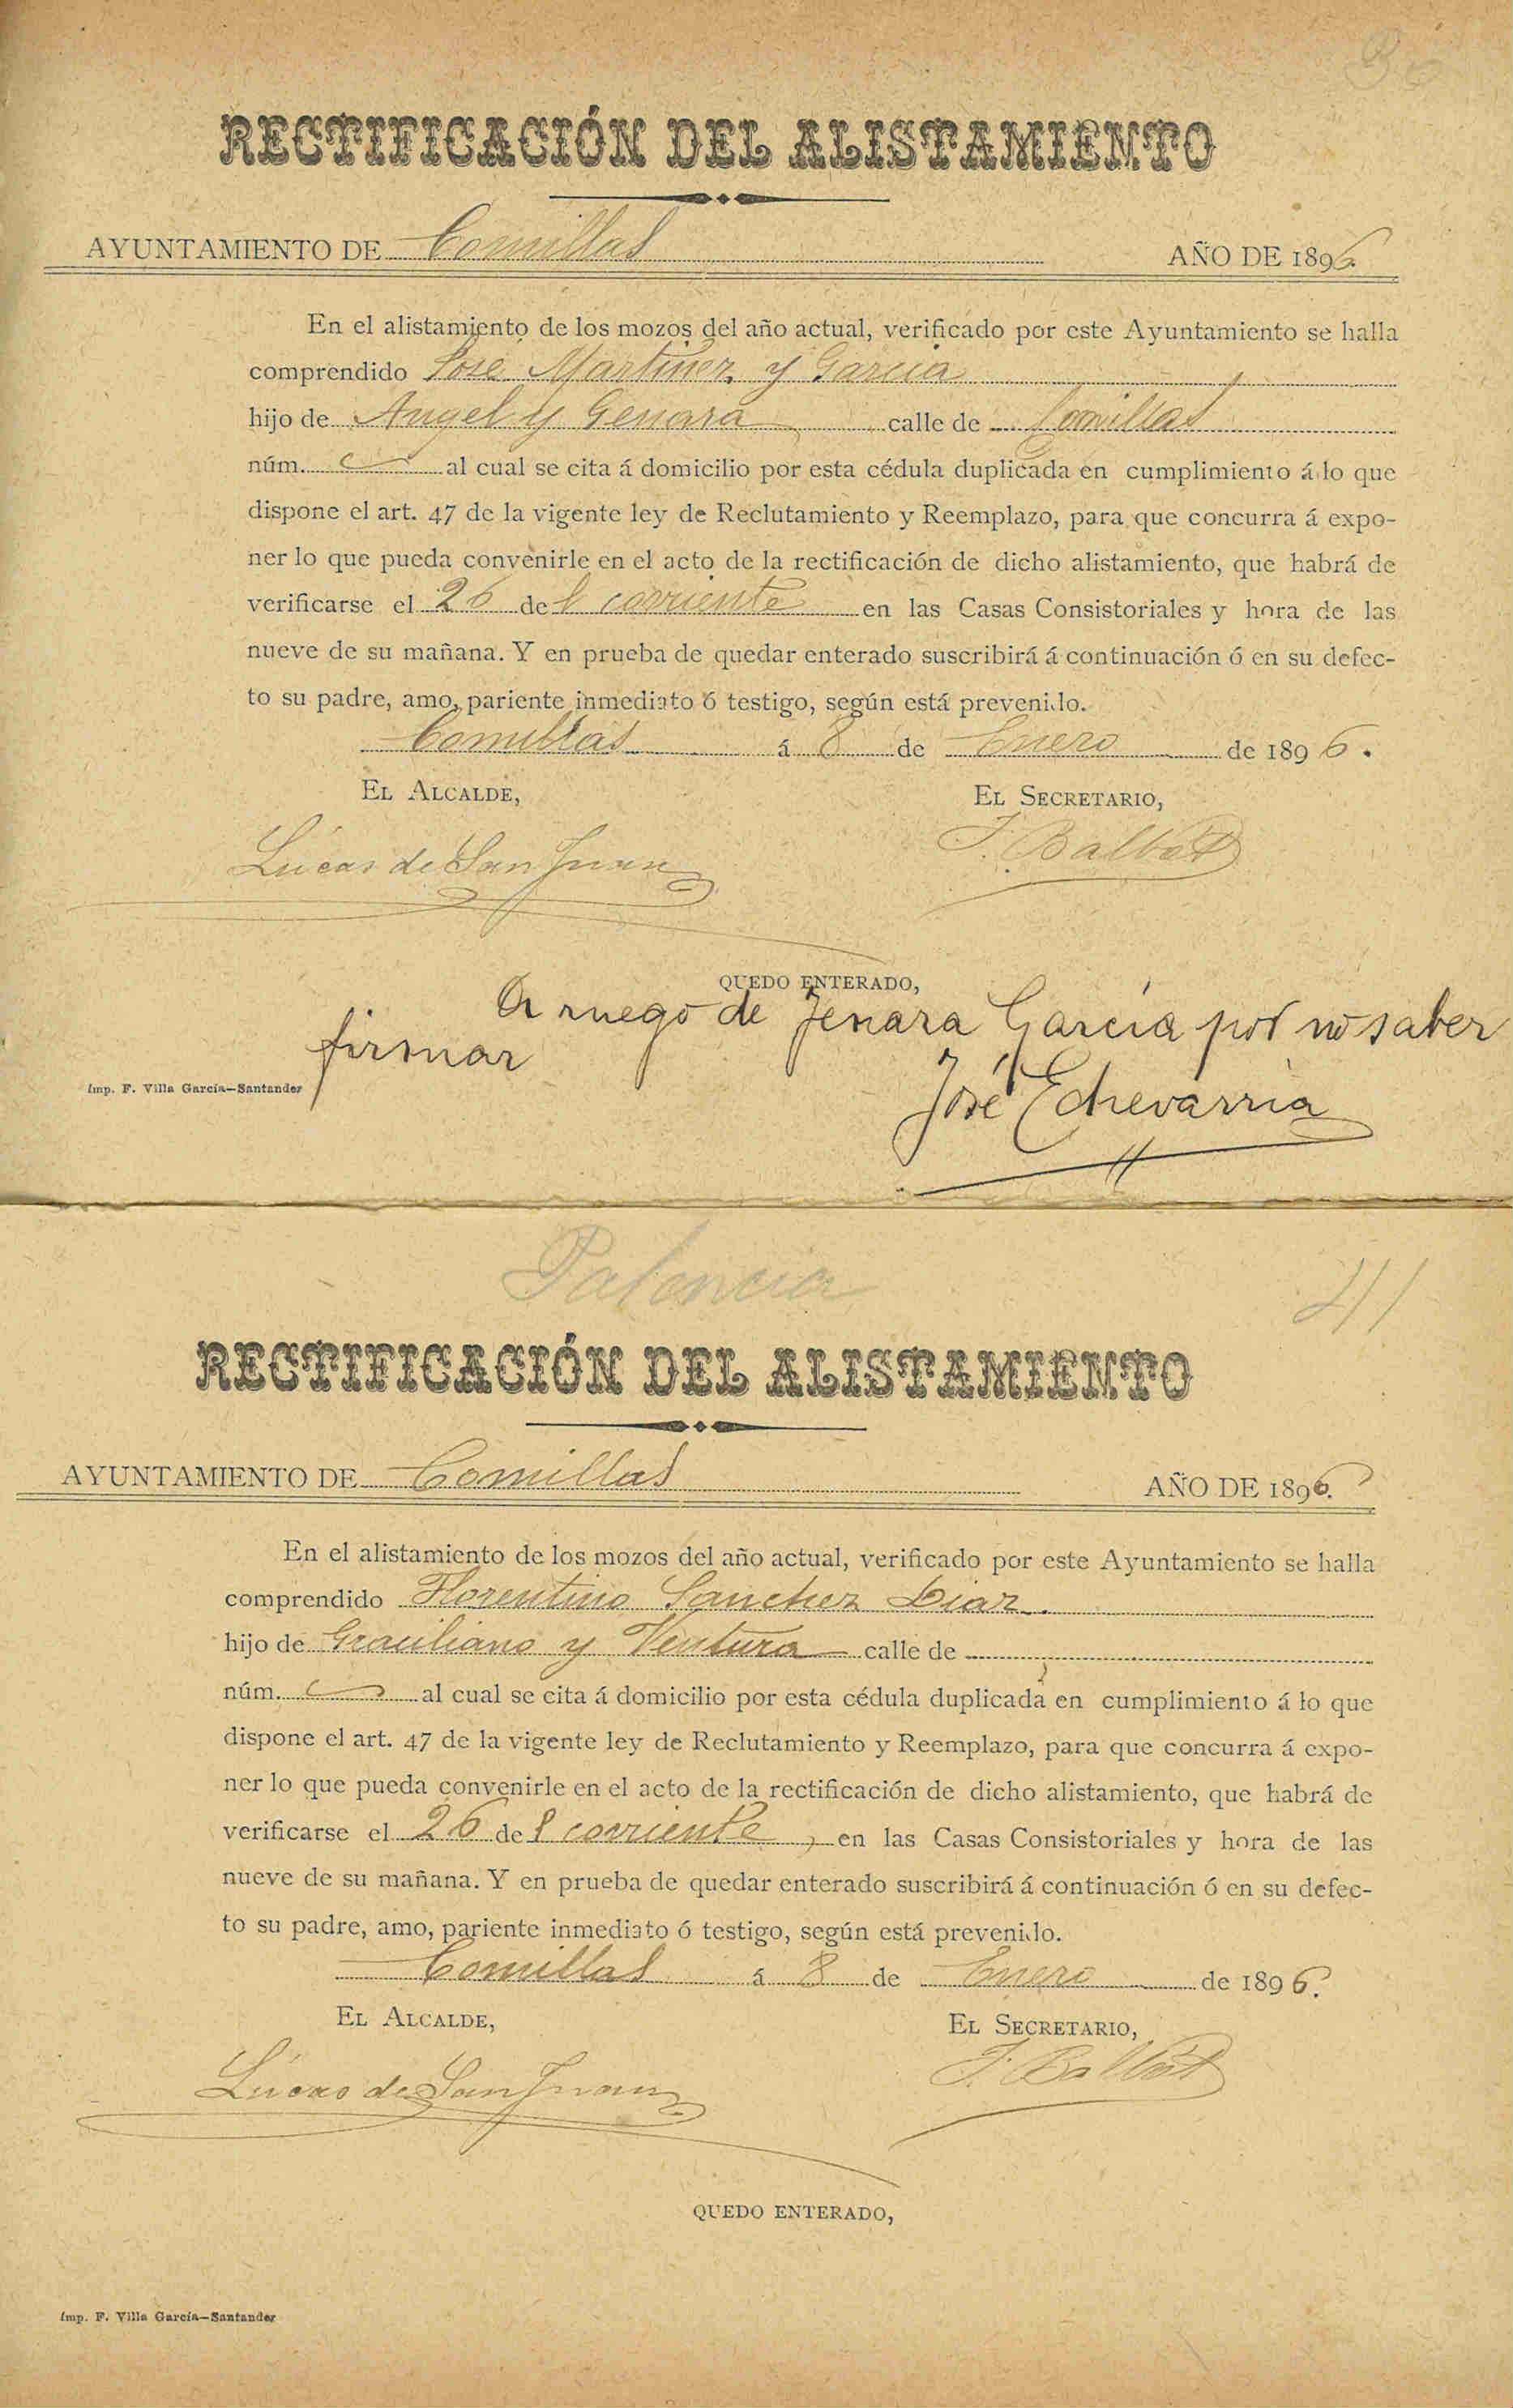 RECTIFICACIÓN DEL ALISTAMIENTO
AYUNTAMIENTO DE Comillas AÑO DE 1896.
En el alistamiento de los mozos del año actual, verificado por este Ayuntamiento se halla
comprendido Jose Martinez y Garcia
hijo de Angel y Genara calle de Comillas
núm. al cual se cita á domicilio por esta cédula duplicada en cumplimiento á lo que
dispone el art. 47 de la vigente ley de Reclutamiento y Reemplazo, para que concurra á expo-
ner lo que pueda convenirle en el acto de la rectificación de dicho alistamiento, que habrá de
verificarse el 26 del corriente en las Casas Consistoriales y hora de las
nueve de su mañana. Y en prueba de quedar enterado suscribirá á continuación ó en su defec-
to su padre, amo, pariente inmediato ó testigo, según está prevenido.
Comillas á 8 de Enero de 1896.
EL ALCALDE, EL SECRETARIO,
Lúcas de San Juan J. Balbás
QUEDO ENTERADO,
A ruego de Jenara García por no saber
firmar
José Echevarria
Imp. F. Villa García—Santander
Palencia 41
RECTIFICACIÓN DEL ALISTAMIENTO
AYUNTAMIENTO DE Comillas AÑO DE 1896.
En el alistamiento de los mozos del año actual, verificado por este Ayuntamiento se halla
comprendido Florentino Sanchez Diaz.
hijo de Graciliano y Ventura calle de
núm. al cual se cita á domicilio por esta cédula duplicada en cumplimiento á lo que
dispone el art. 47 de la vigente ley de Reclutamiento y Reemplazo, para que concurra á expo-
ner lo que pueda convenirle en el acto de la rectificación de dicho alistamiento, que habrá de
verificarse el 26 del corriente, en las Casas Consistoriales y hora de las
nueve de su mañana. Y en prueba de quedar enterado suscribirá á continuación ó en su defec-
to su padre, amo, pariente inmediato ó testigo, según está prevenido.
Comillas á 8 de Enero de 1896.
EL ALCALDE, EL SECRETARIO,
Lúcas de San Juan J. Balbás
QUEDO ENTERADO,
Imp. F. Villa García—Santander